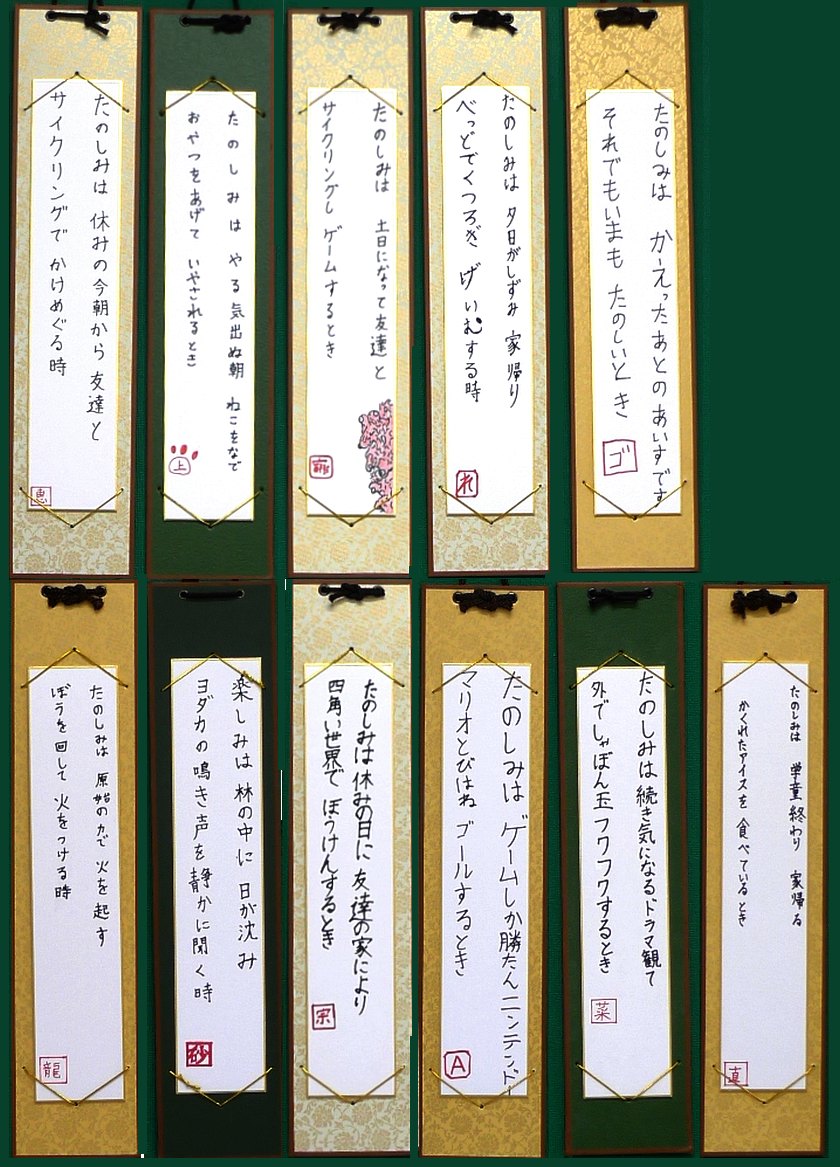 たのしみは 休みの今朝から 友達と
サイクリングで かけめぐる時
恵
たのしみは やる気出ぬ朝 ねこをなで
おやつをあげて いやされるとき
上
たのしみは 土日になって友達と
サイクリングし ゲームするとき
たのしみは 夕日がしずみ 家帰り
べっどでくつろぎ げいむする時
れ
たのしみは かーえったあとのあいすです
それでもいまも たのしいとき
ゴ
たのしみは 原始の力で 火を起す
ぼうを回して 火をつける時
龍
楽しみは 林の中に 日が沈み
ヨダカの鳴き声を 静かに聞く時
砂
たのしみは休みの日に 友達の家により
四角い世界で ぼうけんするとき
宗
たのしみは ゲームしか勝たん ニンテンドー
マリオとびはね ゴールするとき
A
たのしみは続き気になるドラマ観て
外でしゃぼん玉 フワフワするとき
菜
たのしみは 学童終わり 家帰る
かくれたアイスを 食べているとき
直